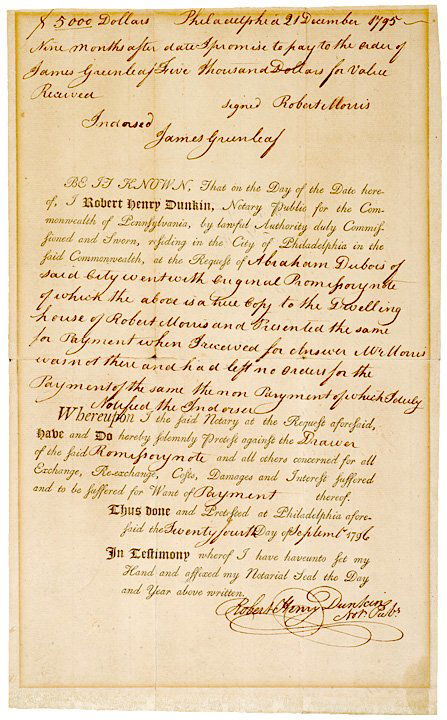 $ 5000 Dollars Philadelphia 21 December 1795
Nine months after date I promise to pay to the order of
James Greenleaf Five Thousand Dollars for Value
Received
signed Robert Morris
Indorsed
James Greenleaf
BE IT KNOWN, That on the Day of the Date here-
of, I Robert Henry Dunkin, Notary Public for the Com-
monwealth of Pennsylvania, by lawful Authority duly Commis-
sioned and Sworn, residing in the City of Philadelphia in the
said Commonwealth, at the Request of Abraham Dubois of
said City went with Original Promissory note
of which the above is a true Copy to the Dwelling
house of Robert Morris and Presented the same
for Payment when I received for Answer Mr Morris
was not there and had left no Orders for the
Payment of the same the non Payment of which I duly
Notified the Indorser
Whereupon I the said Notary at the Request aforesaid,
Have and Do hereby solemnly Protest against the Drawer
of the said Promissory note and all others concerned for all
Exchange, Re-exchange, Costs, Damages and Interest suffered
and to be suffered for Want of Payment thereof.
Thus done and Protested at Philadelphia afore-
said the Twenty fourth Day of Septembr 1796
In Testimony whereof I have hereunto set my
Hand and affixed my Notarial Seal the Day
and Year above written.
Robert Henry Dunkin
Not: Pub: